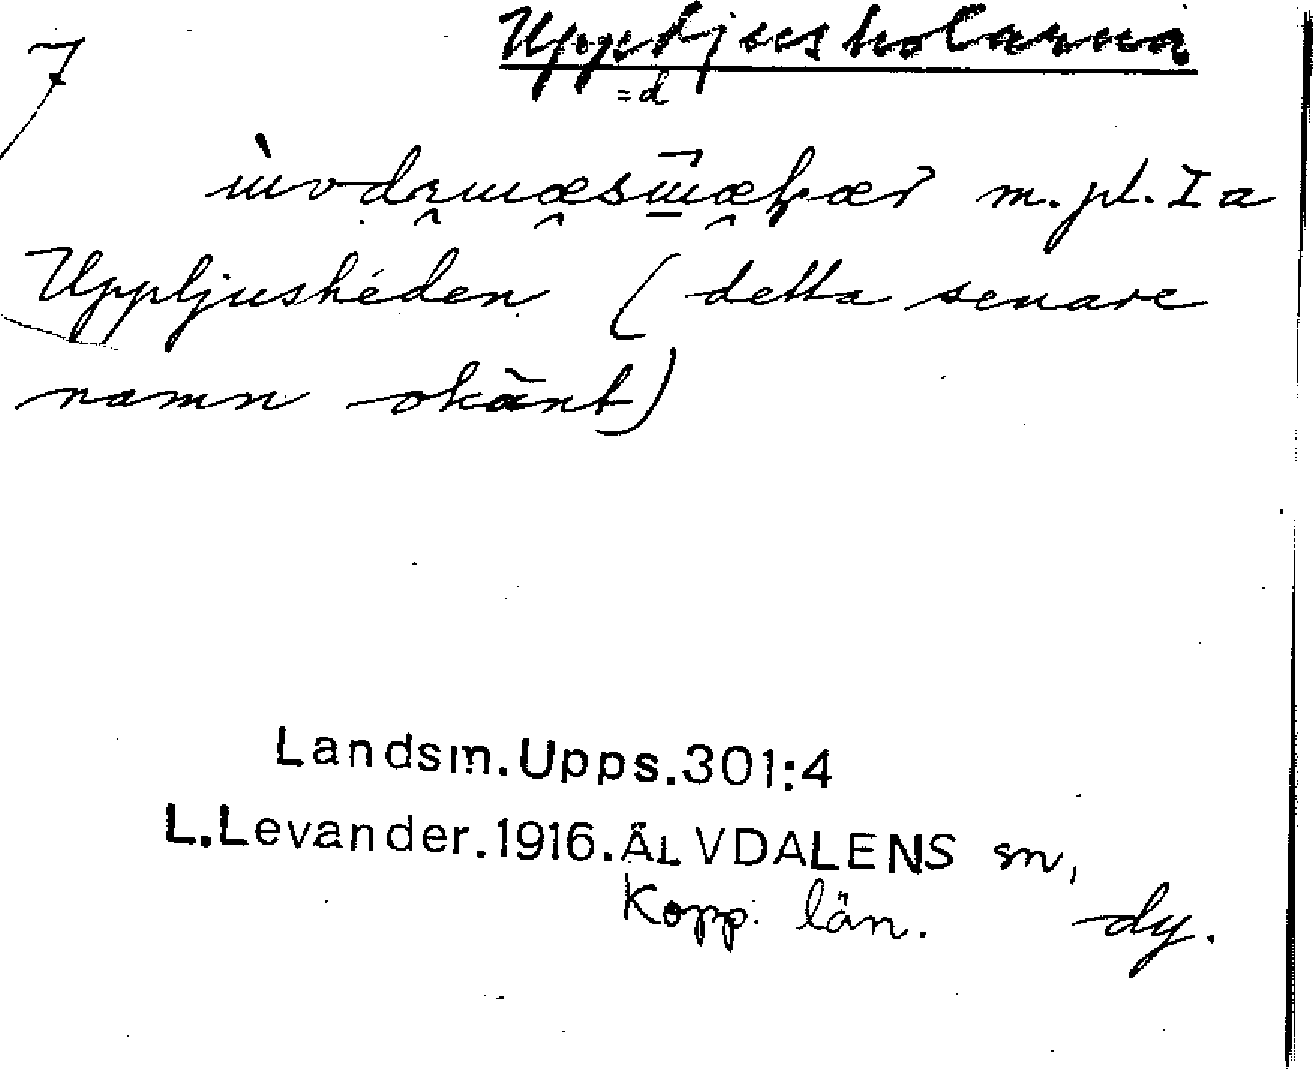 7
=d
m. pl. I a
Uppljushéden (detta senare
namn okänt)
Landsm.Upps.301:4
L.Levander.1916.ÄLVDALENS sn,
Kopp. län. dy.